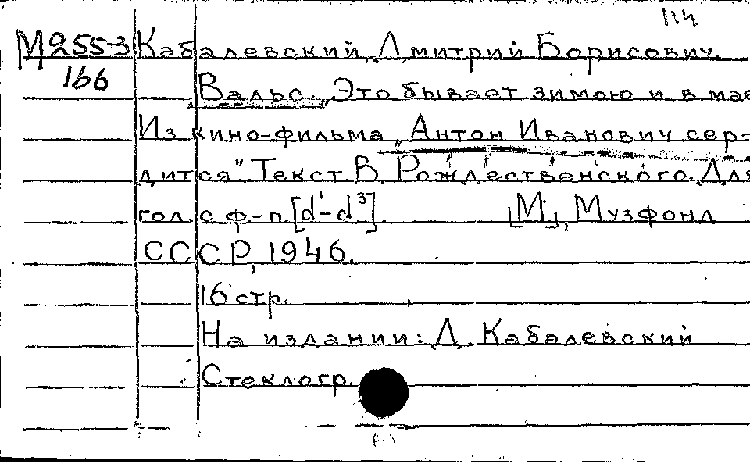 114
М 255-3 Кабалевский, Дмитрий Борисович.
166 Вальс. "Это бывает зимою и в мае
Из кино-фильма "Антон Иванович сер-
дится" Текст В. Рождественского. Для
гол. с ф-п. [d¹-d³]. [М], Музфонд
СССР, 1946.
16 стр.
На издании: Д. Кабалевский
Стеклогр.